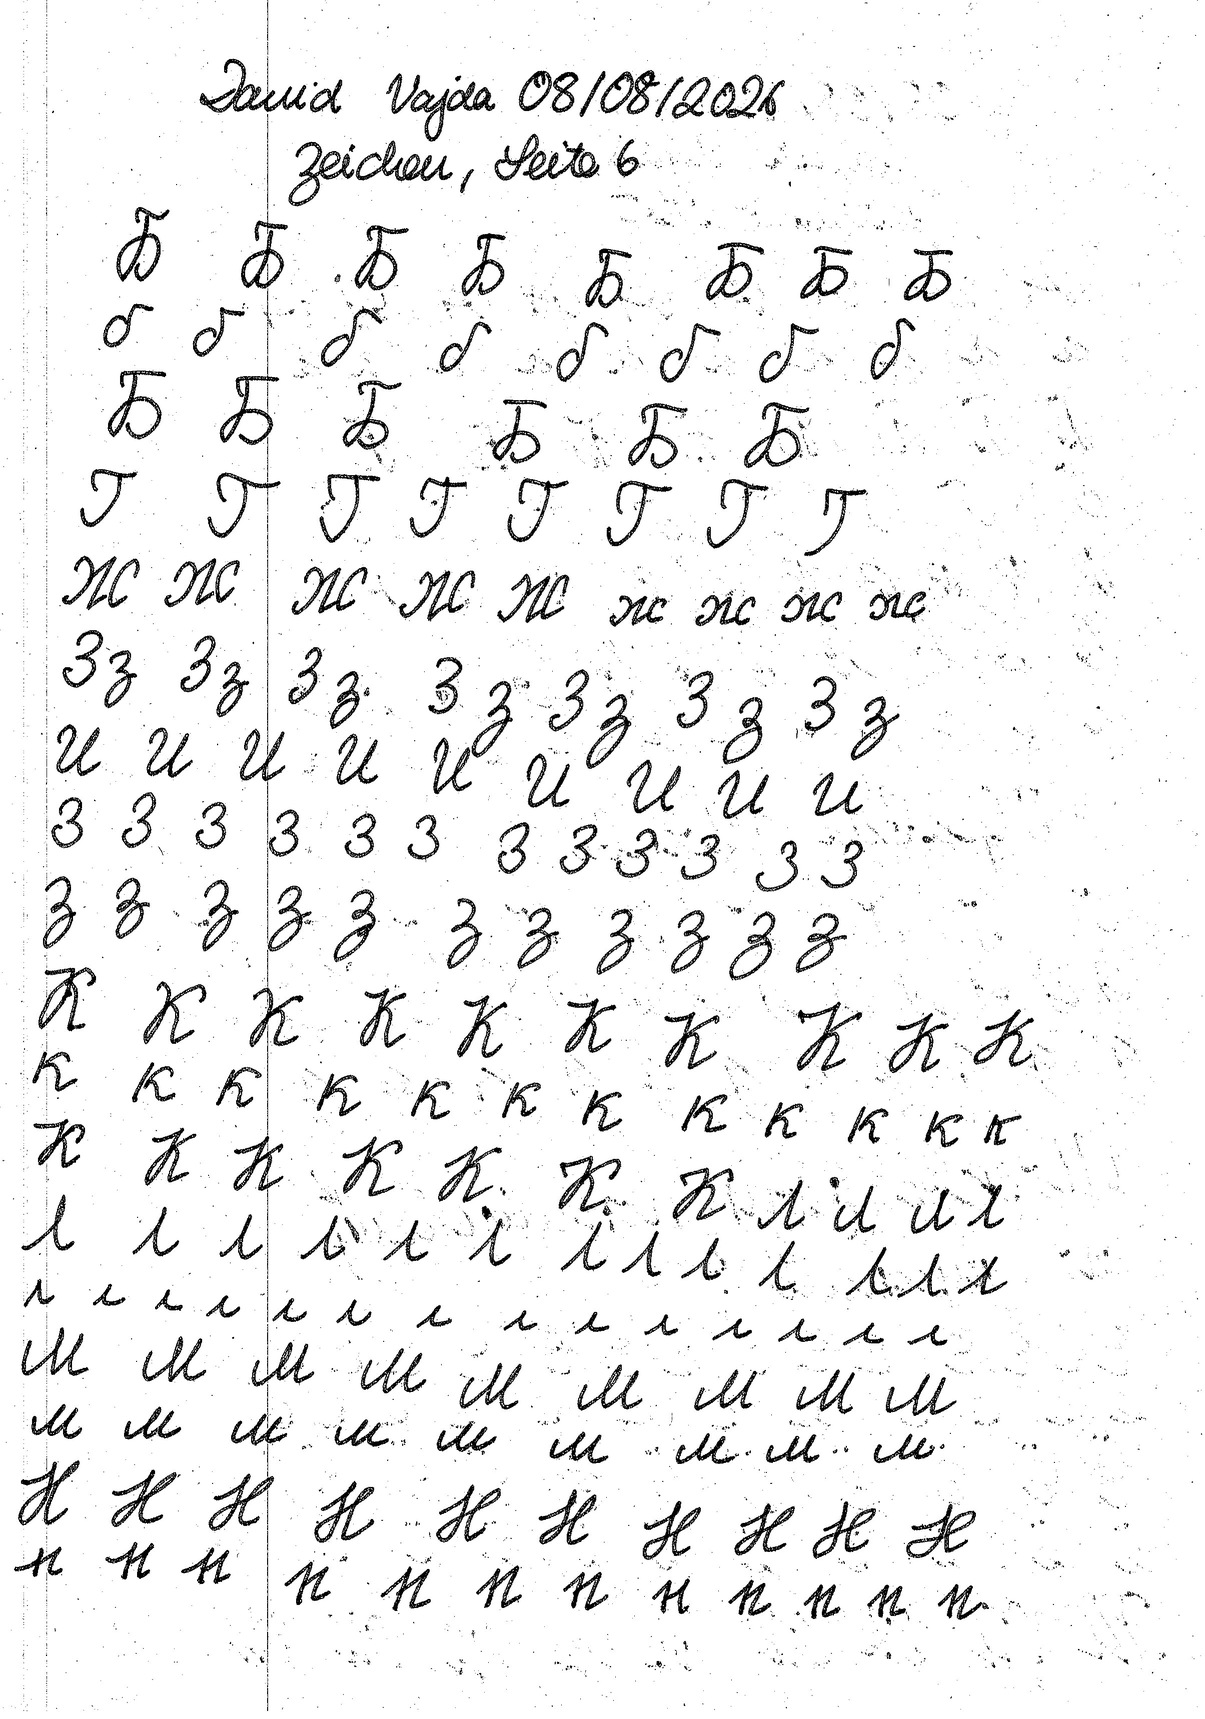 David Vajda 08/08/2026
Zeichen, Seite 6
Б Б Б Б Б Б Б Б
б б б б б б б б
Б Б Б Б Б Б
Г Г Г Г Г Г Г Г
Ж Ж Ж Ж Ж ж ж ж ж
З з З з З з З з З з З з З з
И И И И И И И И И
З З З З З З З З З З З З
з з з з з з з з з з з
К К К К К К К К К К
к к к к к к к к к к к к
К К К К К К К Л Л Л Л
Л Л Л Л Л Л Л Л Л Л Л Л Л
л л л л л л л л л л л л л л
М М М М М М М М М
м м м м м м м м м
Н Н Н Н Н Н Н Н Н Н
н н н н н н н н н н н н